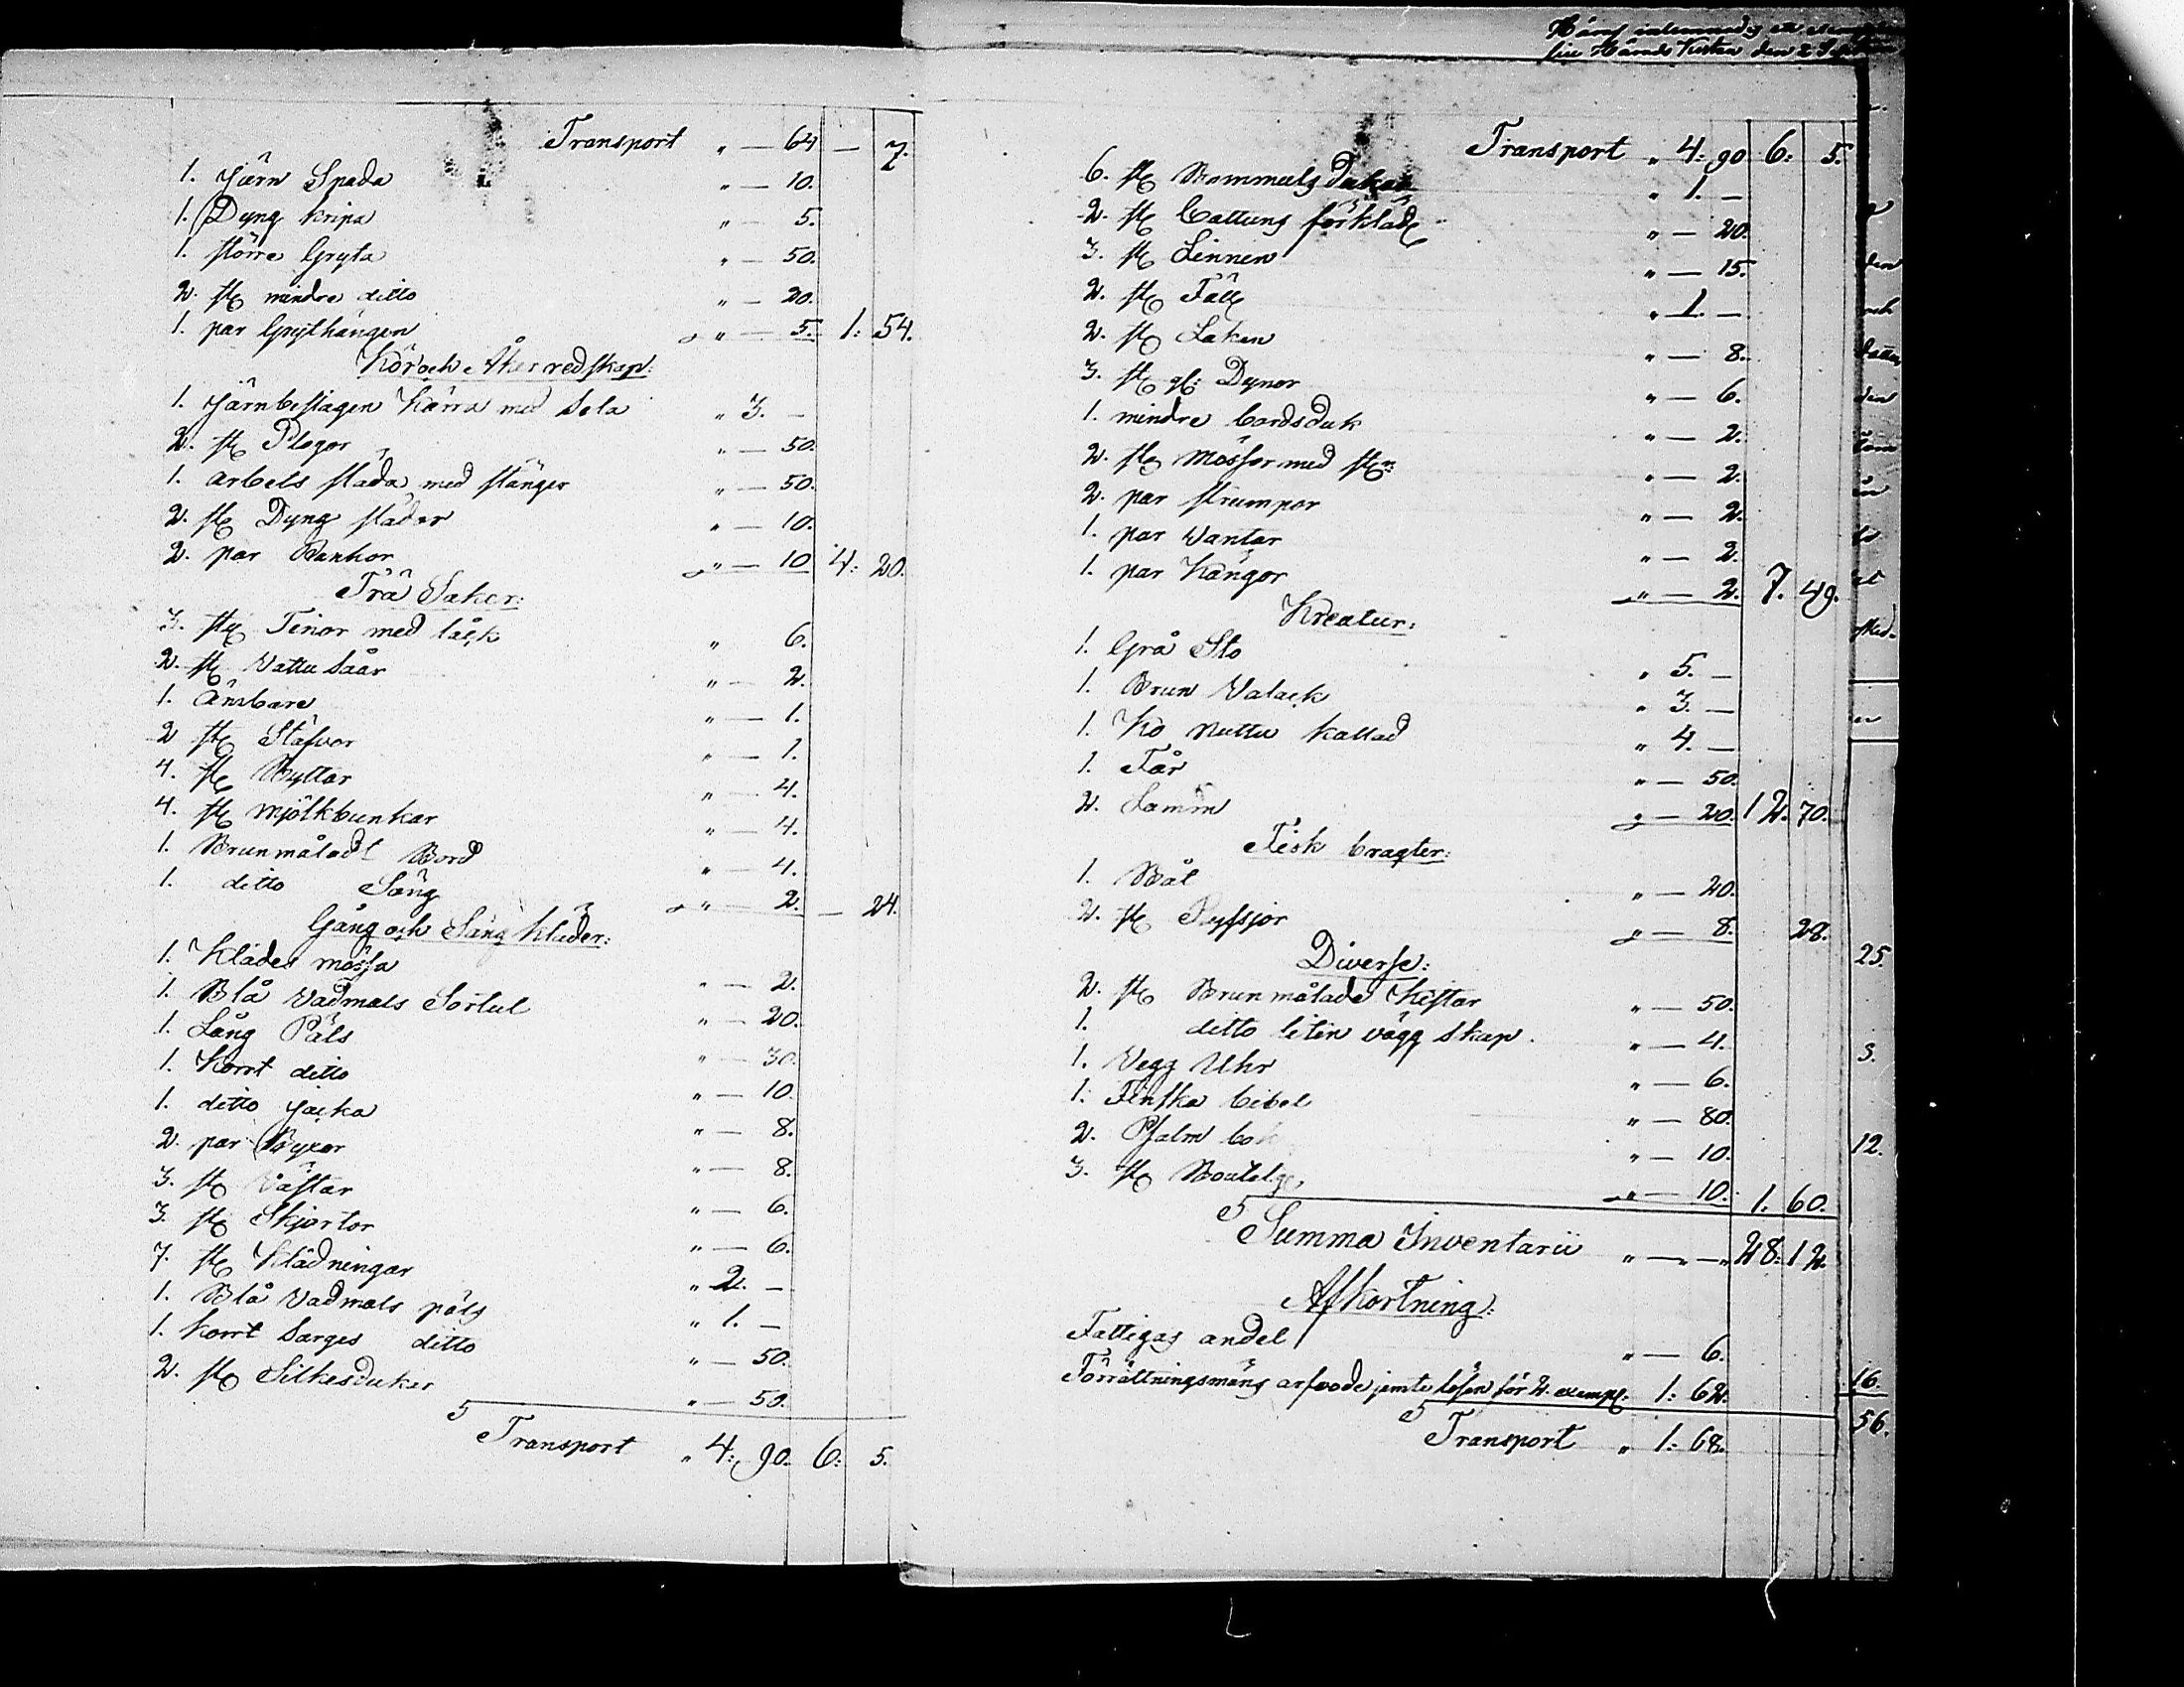 Transport " — 64 — 7.
1. Järn Spada " — 10.
1. Dyng kripa " — 5.
1. större Gryta " — 50.
2. st mindre ditto " — 20.
1. par Grythängen " — 5. 1: 54.
Kör och Åker redskap:
1. Järnbeslagen Kärra med Sela " 3. —
2. st Plogor " — 50.
1. arbets släda med stänger " — 50.
2. st Dyng slädor " — 10.
2. par Rankor " — 10 4: 20.
Trä Saker:
3. st Tinor med låck " 6.
2. st Vattu Saår " — 2.
1. Ämbare " — 1.
2 st Stäfvor " — 1.
4. st Byttor " — 4.
4. st Mjölkbunkar " — 4.
1. Brunmåladt Bord " — 4.
1. ditto Säng " — 2. — 24.
Gång och Säng Kläder:
1. Klädes mössa " — 2.
1. Blå Vadmals Sortut " — 20.
1. Lång Päls " — 30.
1. Kort ditto " — 10.
1. ditto jacka " — 8.
2. par Byxor " — 8.
3. st Västar " — 6.
3. st Skjortor " — 6.
7. st Klädningar " 2. —
1. Blå Vadmals päls " 1. —
1. kort Sarges ditto " — 50.
2. st Silkesduker " — 50.
Transport " 4: 90. 6: 5.
Transport " 4: 90 6: 5.
6. st Bommuls Dukar " 1. —
2. st Cattuns förkläde " — 20.
3. st Linnen " — 15.
2. st Fäll " 1. —
2. st Lakan " — 8.
3. st gl: Dynor " — 6.
1. mindre bordsduk " — 2.
2. st Mössor med st " — 2.
2. par strumpor " — 2.
1. par Vantar " — 2.
1. par Kängor " — 2. 7. 49.
Kreatur:
1. Grå Sto " 5. —
1. Brun Valack " 3. —
1. Ko Nuttu kallad " 4. —
1. Får " — 50.
2. Lamm " — 20. 12. 70.
Fisk bragter:
1. Båt " — 20.
2. st Ryssjor " — 8. 28.
Diverse:
2. st Brunmålade Kistor " — 50.
1. ditto liten vägg skap. " — 4.
1. Vegg Uhr " — 6.
1. Finska bibel " — 80.
2. Psalm bok " — 10.
3. st Boutelger " — 10. 1. 60.
Summa Inventarii " — " — " 28: 12.
Afkortning:
Fattigas andel " — 6.
Förrättningsmäns arfvode jemte lösen för 2. exempl: 1: 62.
Transport " 1: 68.
25.
3.
12.
16.
56.